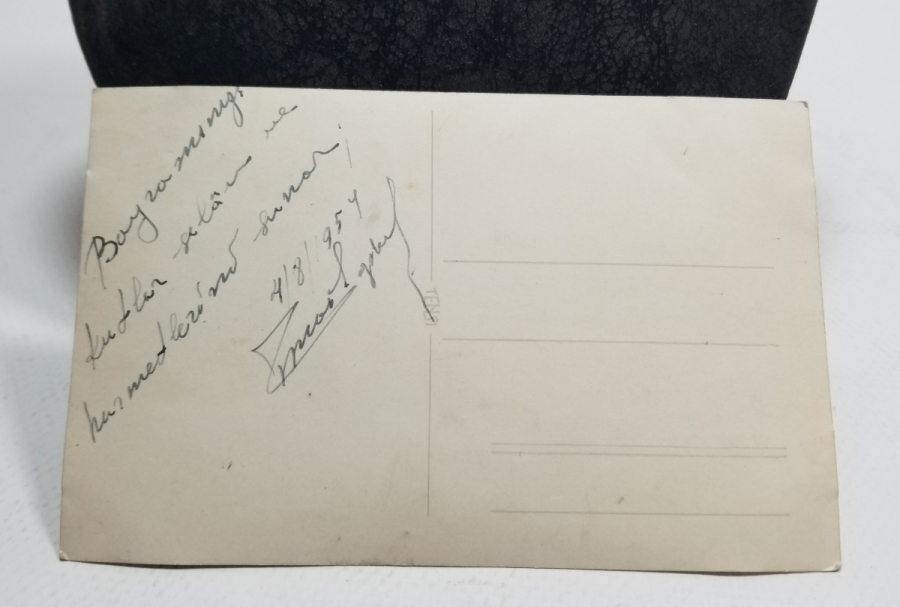 Bayramınızı
kutlar selâm ve
hürmetlerimi sunar,
4/8/1954
İsmail